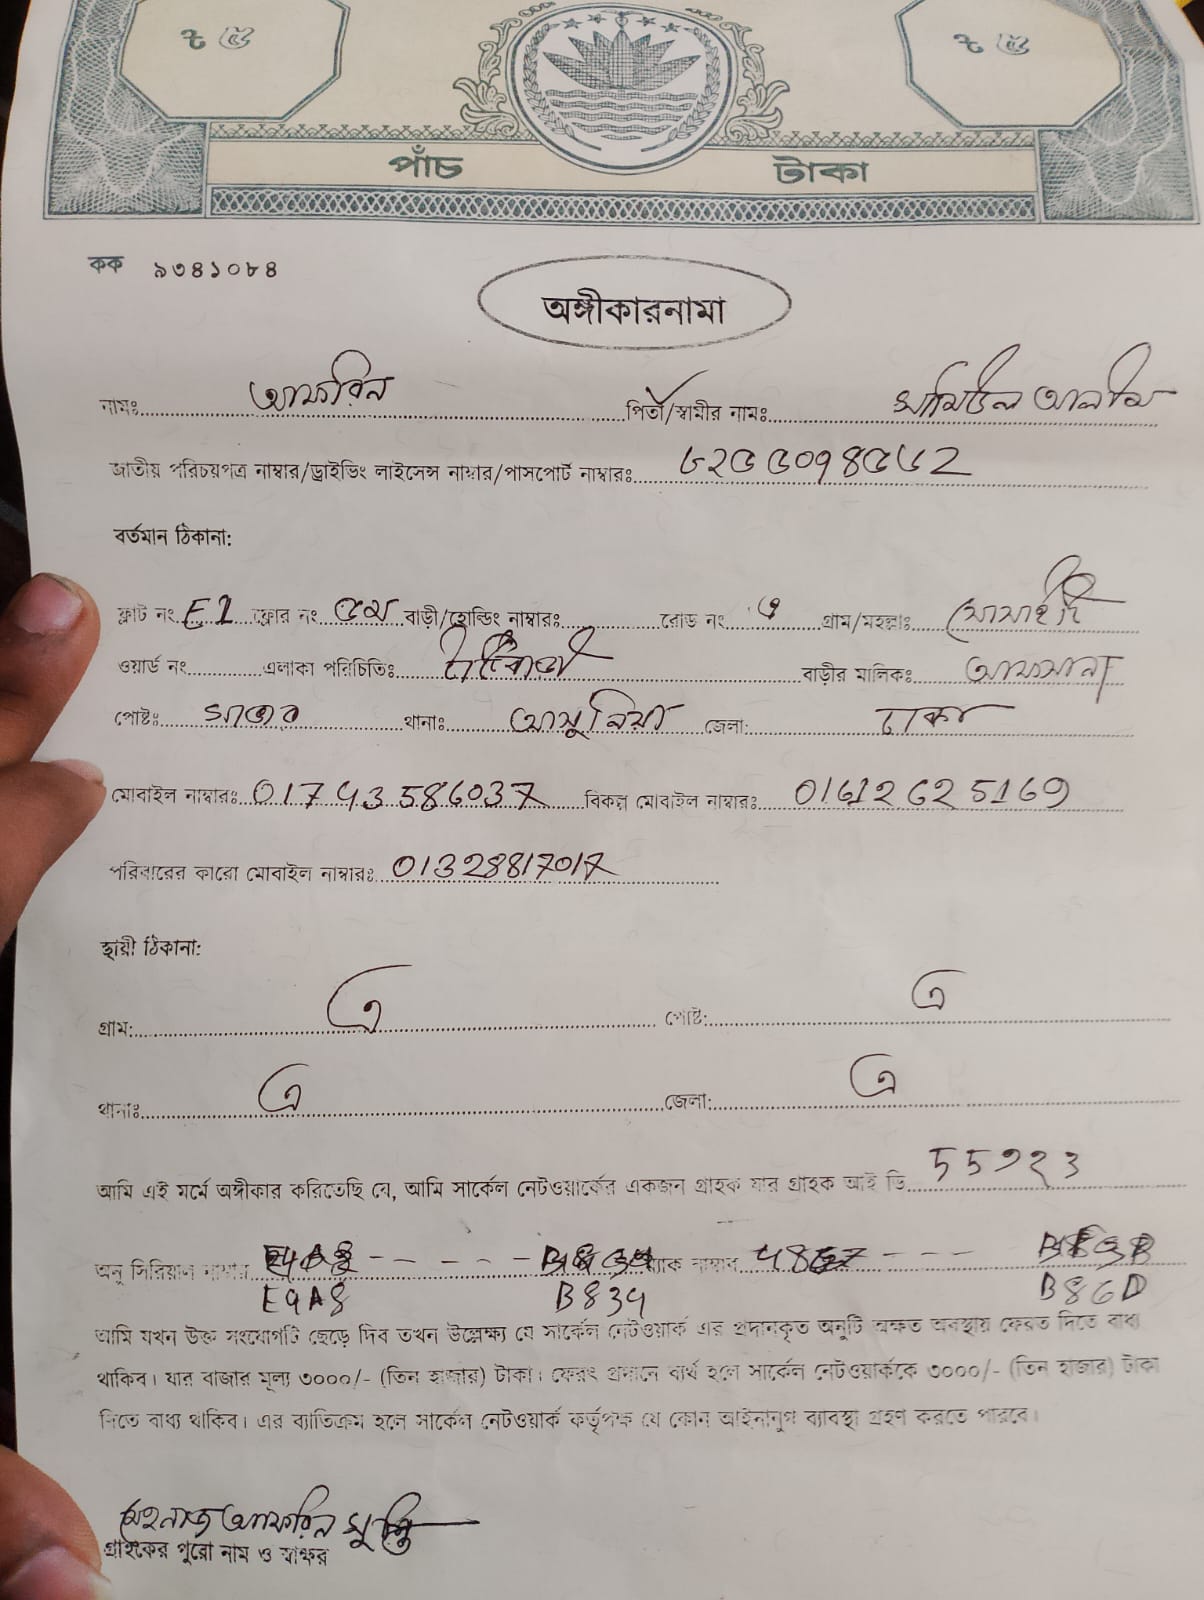 ৳ ৫ ৳ ৫
পাঁচ টাকা
কক ৯৩৪১০৮৪
অঙ্গীকারনামা
নামঃ আফরিন পিতা/স্বামীর নামঃ আলীম
জাতীয় পরিচয়পত্র নাম্বার/ড্রাইভিং লাইসেন্স নাম্বার/পাসপোর্ট নাম্বারঃ
বর্তমান ঠিকানা:
ফ্লাট নং E1 ফ্লোর নং ৫ম বাড়ী/হোল্ডিং নাম্বারঃ রোড নং গ্রাম/মহল্লাঃ
ওয়ার্ড নং এলাকা পরিচিতিঃ বাড়ীর মালিকঃ
পোষ্টঃ সাভার থানাঃ আশুলিয়া জেলা: ঢাকা
মোবাইল নাম্বারঃ 01743586037 বিকল্প মোবাইল নাম্বারঃ 01612625169
পরিবারের কারো মোবাইল নাম্বারঃ 01328817017
স্থায়ী ঠিকানা:
গ্রাম: ঐ পোষ্ট: ঐ
থানাঃ ঐ জেলা: ঐ
আমি এই মর্মে অঙ্গীকার করিতেছি যে, আমি সার্কেল নেটওয়ার্কের একজন গ্রাহক যার গ্রাহক আই ডি
অনু সিরিয়াল নাম্বার ম্যাক নাম্বার
B839 B86D
আমি যখন উক্ত সংযোগটি ছেড়ে দিব তখন উল্লেক্ষ্য যে সার্কেল নেটওয়ার্ক এর প্রদানকৃত অনুটি অক্ষত অবস্থায় ফেরত দিতে বাধ্য
থাকিব। যার বাজার মূল্য ৩০০০/- (তিন হাজার) টাকা। ফেরৎ প্রদানে ব্যর্থ হলে সার্কেল নেটওয়ার্ককে ৩০০০/- (তিন হাজার) টাকা
দিতে বাধ্য থাকিব। এর ব্যাতিক্রম হলে সার্কেল নেটওয়ার্ক কর্তৃপক্ষ যে কোন আইনানুগ ব্যাবস্থা গ্রহণ করতে পারবে।
আফরিন
গ্রাহকের পুরো নাম ও স্বাক্ষর